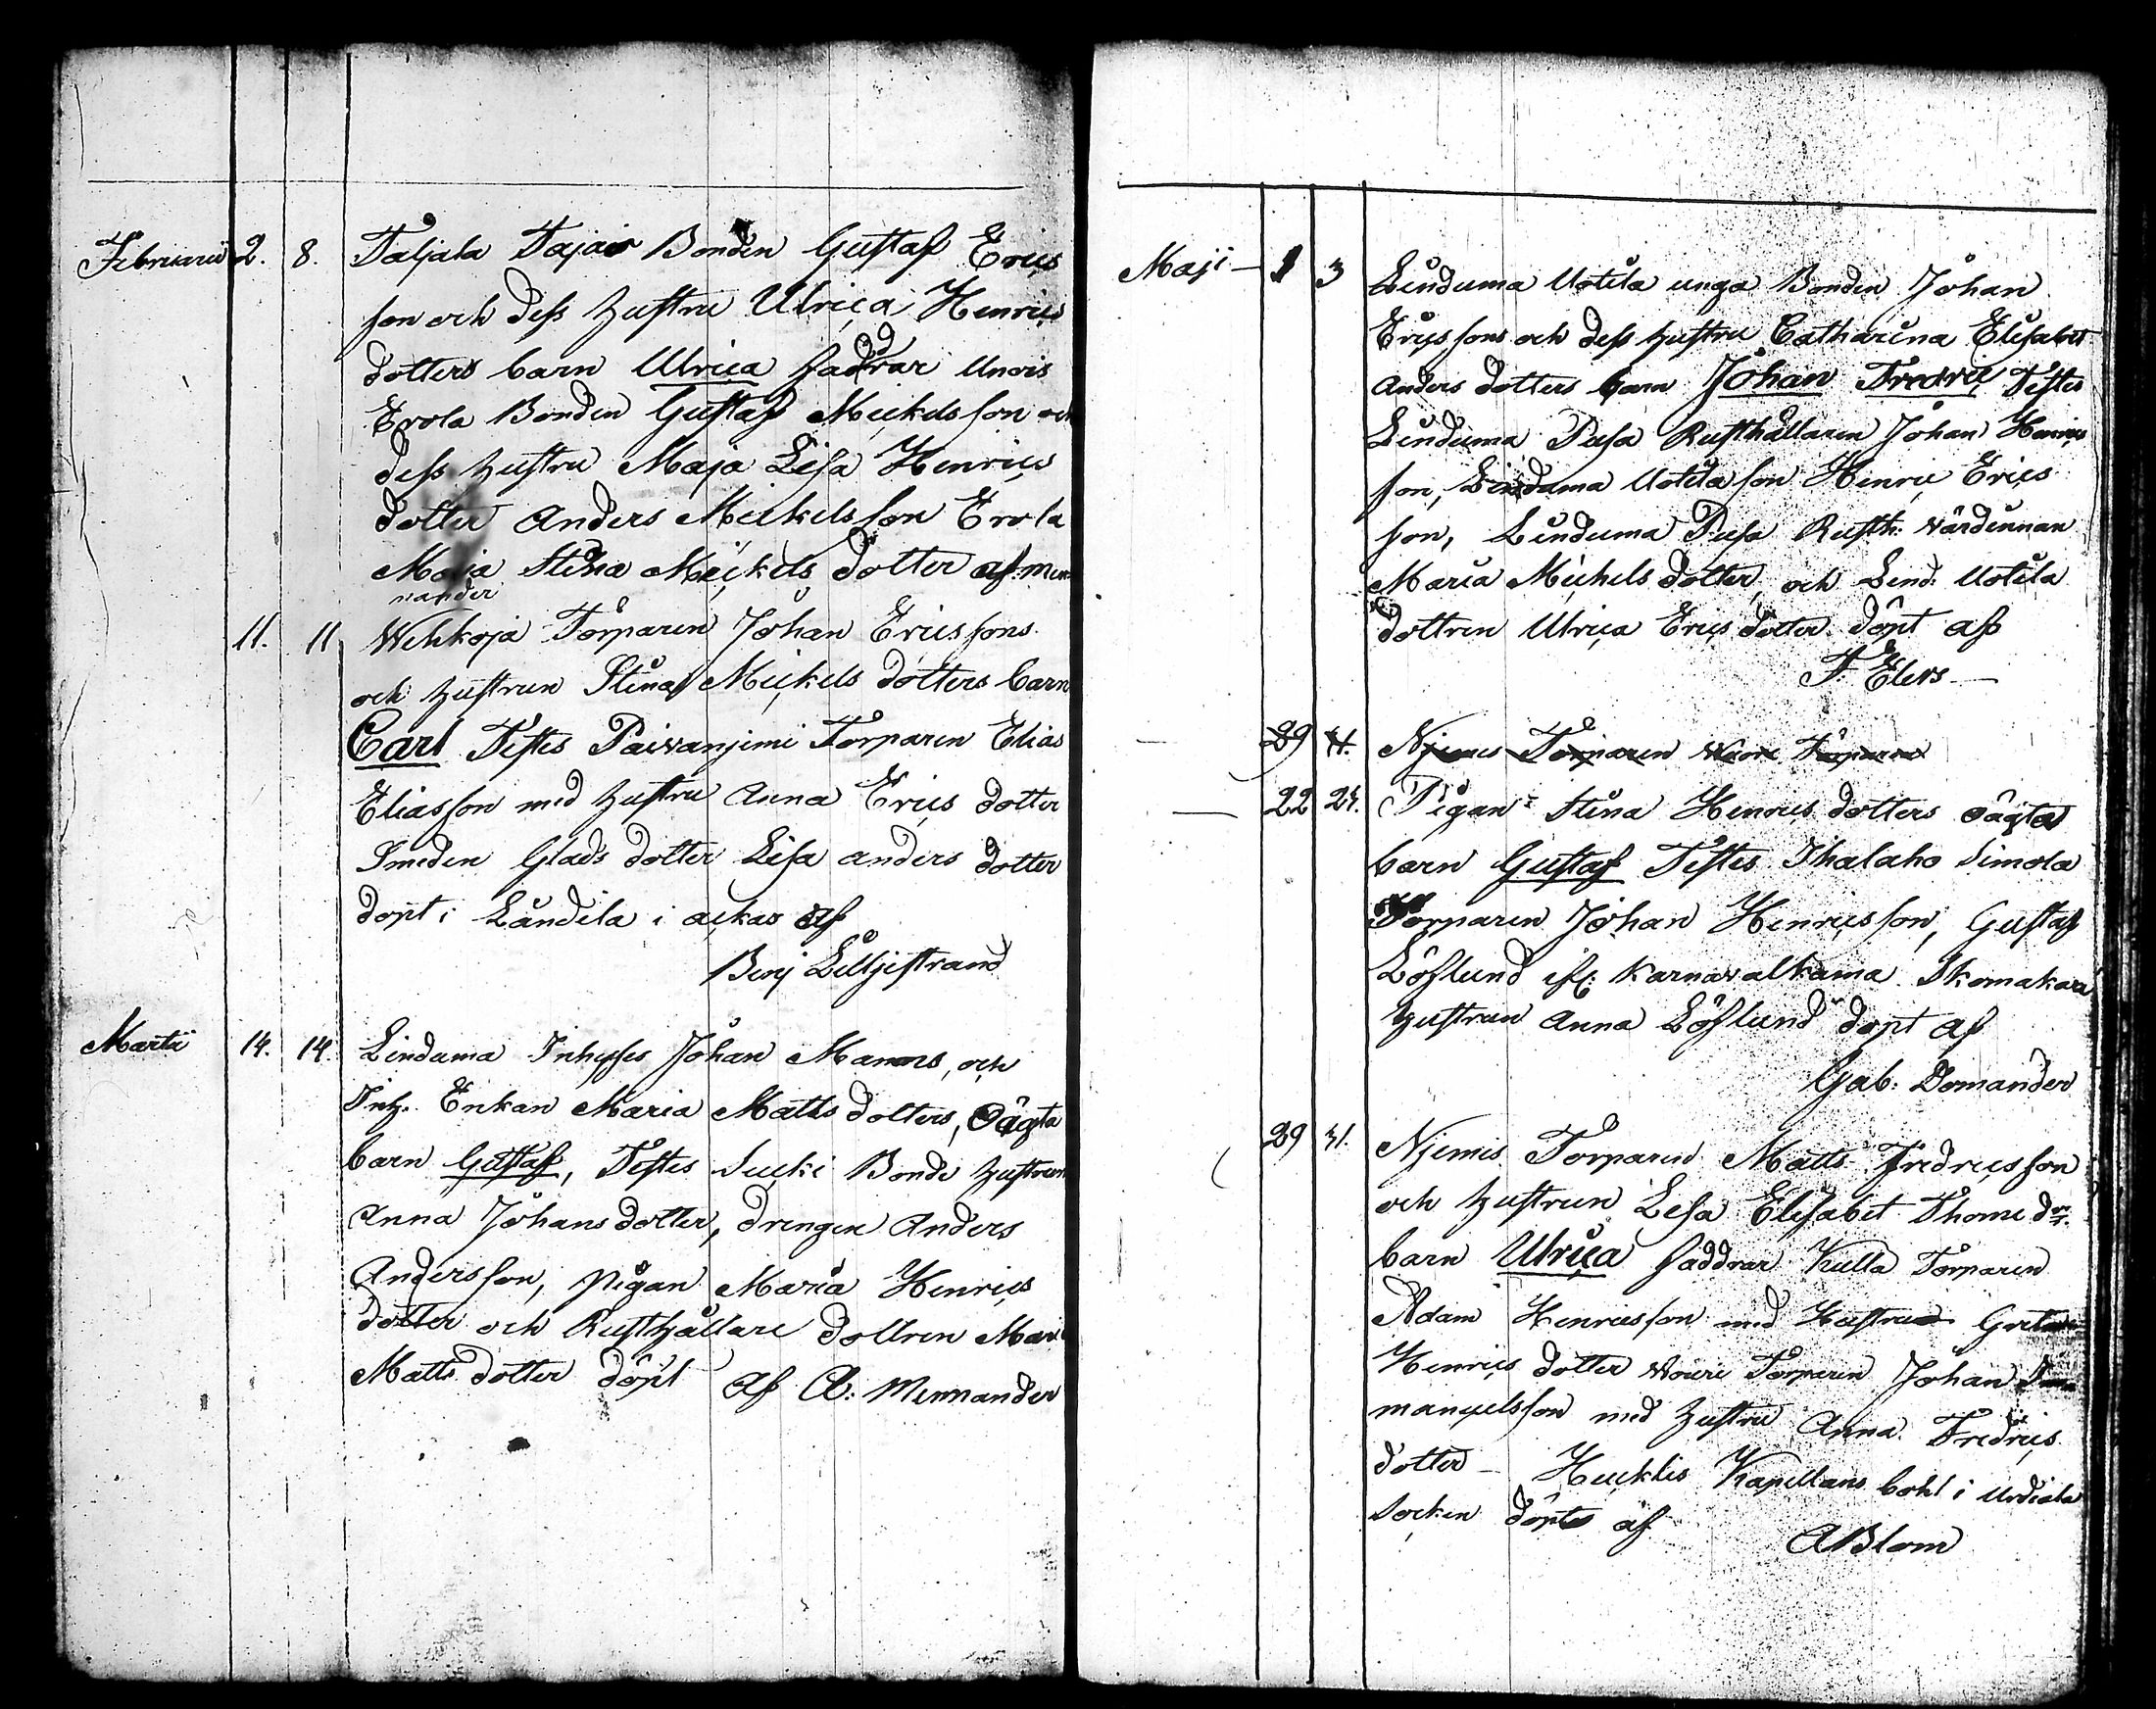 Februarii 2. 8. Taljala Tajais Bonden Gustaf Erics
son och dess hustru Ulrica Henrics
dotters barn Ulrica faddrar Unois
Erola Bonden Gustaf Mickelsson och
dess hustru Maja Lisa Henrics
dotter Anders Mickelsson Erola
Maja Stina Mickels dotter af Men
nander
11. 11 Wehkoja Torparen Johan Ericssons
och hustrun Stina Mickels dotters barn
Carl Testes Paivanjemi Torparen Elias
Eliasson med hustru Anna Erics dotter
Smeden Glads dotter Lisa anders dotter
dopt i Landila i ackas af
Benj Lilljestrand
Martii 14. 14. Lindama Inhyses Johan Manns, och
Inh. Enkan Maria Matts dotters, Oägta
barn Gustaf, Testes Sucki Bonde hustrun
Anna Johans dotter, drengen Anders
Andersson, pigan Maria Henrics
dotter och Rusthållare dottren Mari
Matts dotter döpt af A: Mennander
Maji - 1 3 Linduma Uotila unga Bonden Johan
Ericssons och dess hustru Catharina Elisabet
Anders dotters barn Johan Fredric Testes
Linduma Pusa Rusthållaren Johan Henrics
son, Linduma Uotila son Henric Erics
son, Linduma Pusa Rusth: wärdinnan
Maria Michels dotter, och Lind: Uotila
dottren Ulrica Erics dotter. döpt af
F. Elers
29 31. Njemis Torparen Torparen
22 24. Pigan Stina Henrics dotters oägta
barn Gustaf Testes Ihalaho Simola
Torparen Johan Henricsson, Gustaf
Löflund Karnawalkama Skomakare
hustrun Anna Löflund dopt af
Gab: Domander
29 31. Njemis Torparen Matts Fredricsson
och hustrun Lesa Elisabet Thome dr.
barn Ulrica faddrar Kulla Torparen
Adam Henricsson med Hustrun Greta
Henrics dotter Wouri Torparen Johan Im
manuelsson med hustru Anna Fredrics
dotter - Hucklis Kapellans bohl i Urdiala
Socken döpts af
ABlom